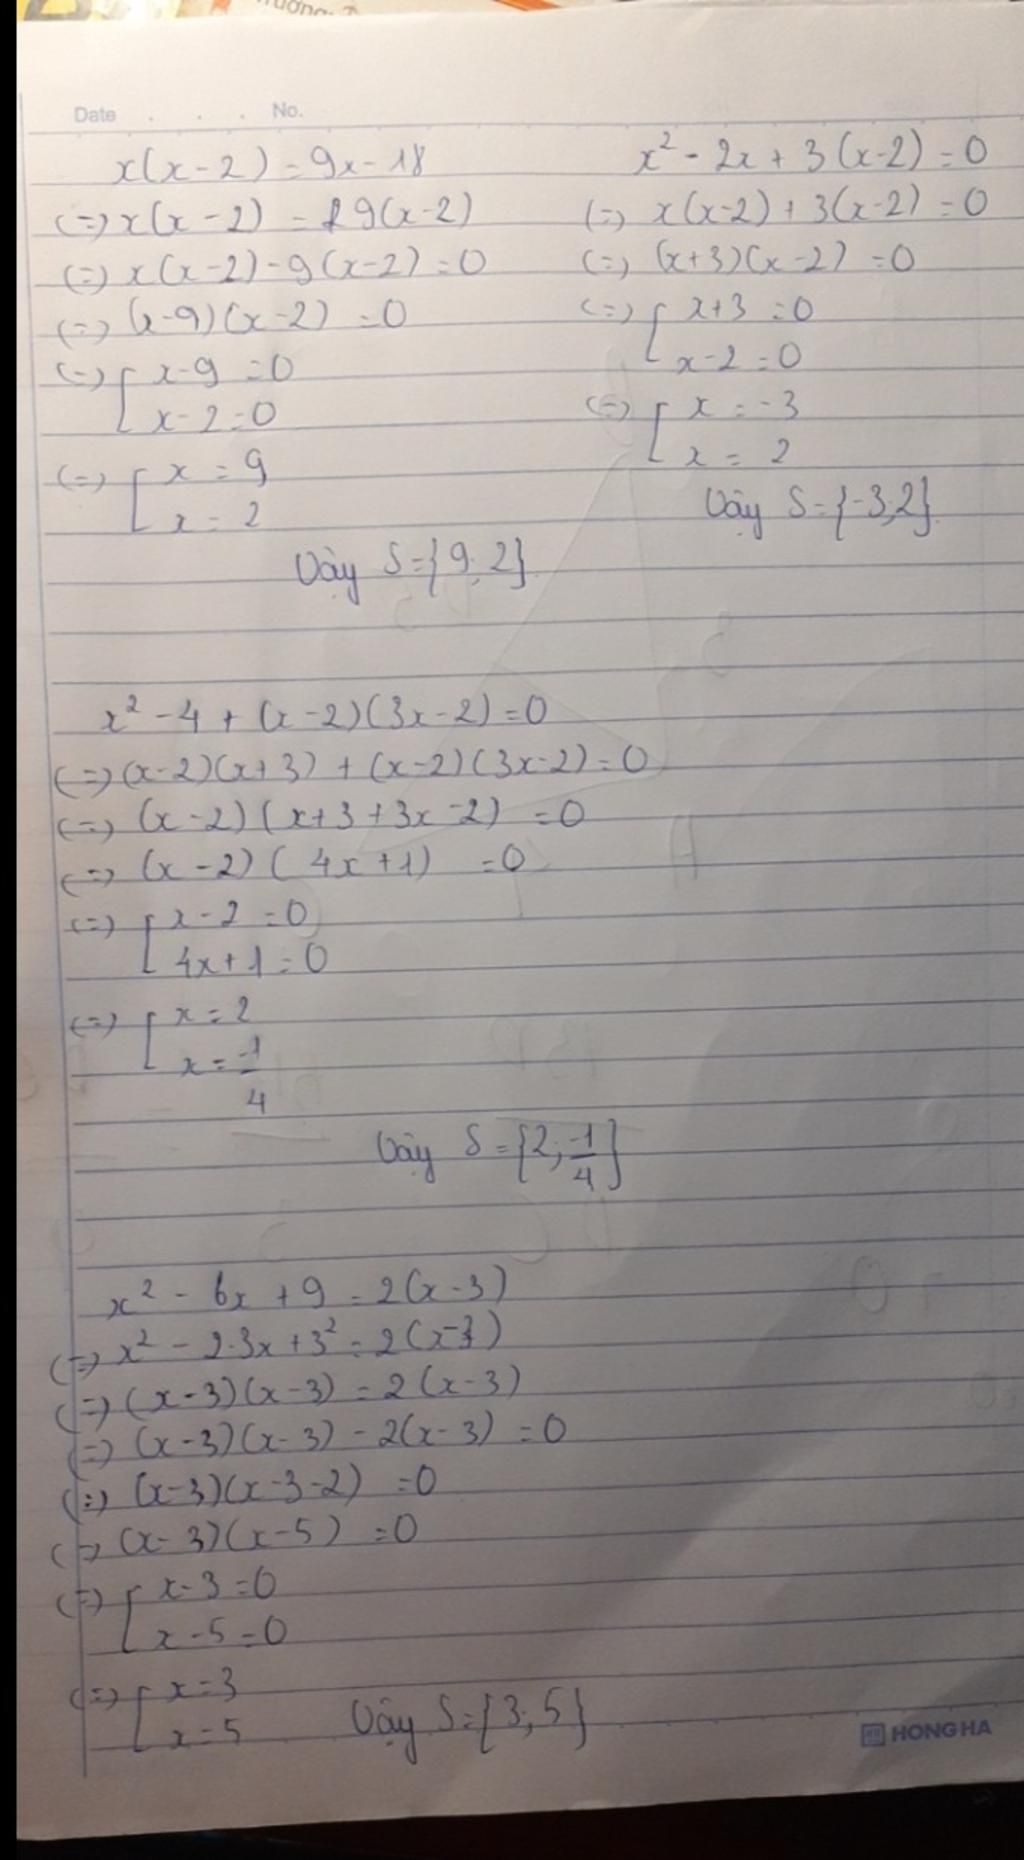 Date . . . No.
x(x-2) = 9x-18
(=) x(x-2) = 9(x-2)
(=) x(x-2)-9(x-2) = 0
(=) (x-9)(x-2) = 0
(=) [ x-9 = 0
x-2 = 0
(=) [ x = 9
x = 2
Vậy S={9; 2}
x² - 2x + 3(x-2) = 0
(=) x(x-2) + 3(x-2) = 0
(=) (x+3)(x-2) = 0
(=) [ x+3 = 0
x-2 = 0
(=) [ x = -3
x = 2
Vậy S={-3;2}
x² - 4 + (x-2)(3x-2) = 0
(=) (x-2)(x+3) + (x-2)(3x-2) = 0
(=) (x-2)(x+3+3x-2) = 0
(=) (x-2)(4x+1) = 0
(=) [ x-2 = 0
4x+1 = 0
(=) [ x = 2
x = -1/4
Vậy S={2; -1/4}
x² - 6x + 9 = 2(x-3)
(=) x² - 2.3x + 3² = 2(x-3)
(=) (x-3)(x-3) = 2(x-3)
(=) (x-3)(x-3) - 2(x-3) = 0
(=) (x-3)(x-3-2) = 0
(=) (x-3)(x-5) = 0
(=) [ x-3 = 0
x-5 = 0
(=) [ x = 3
x = 5
Vậy S={3; 5}
HONG HA